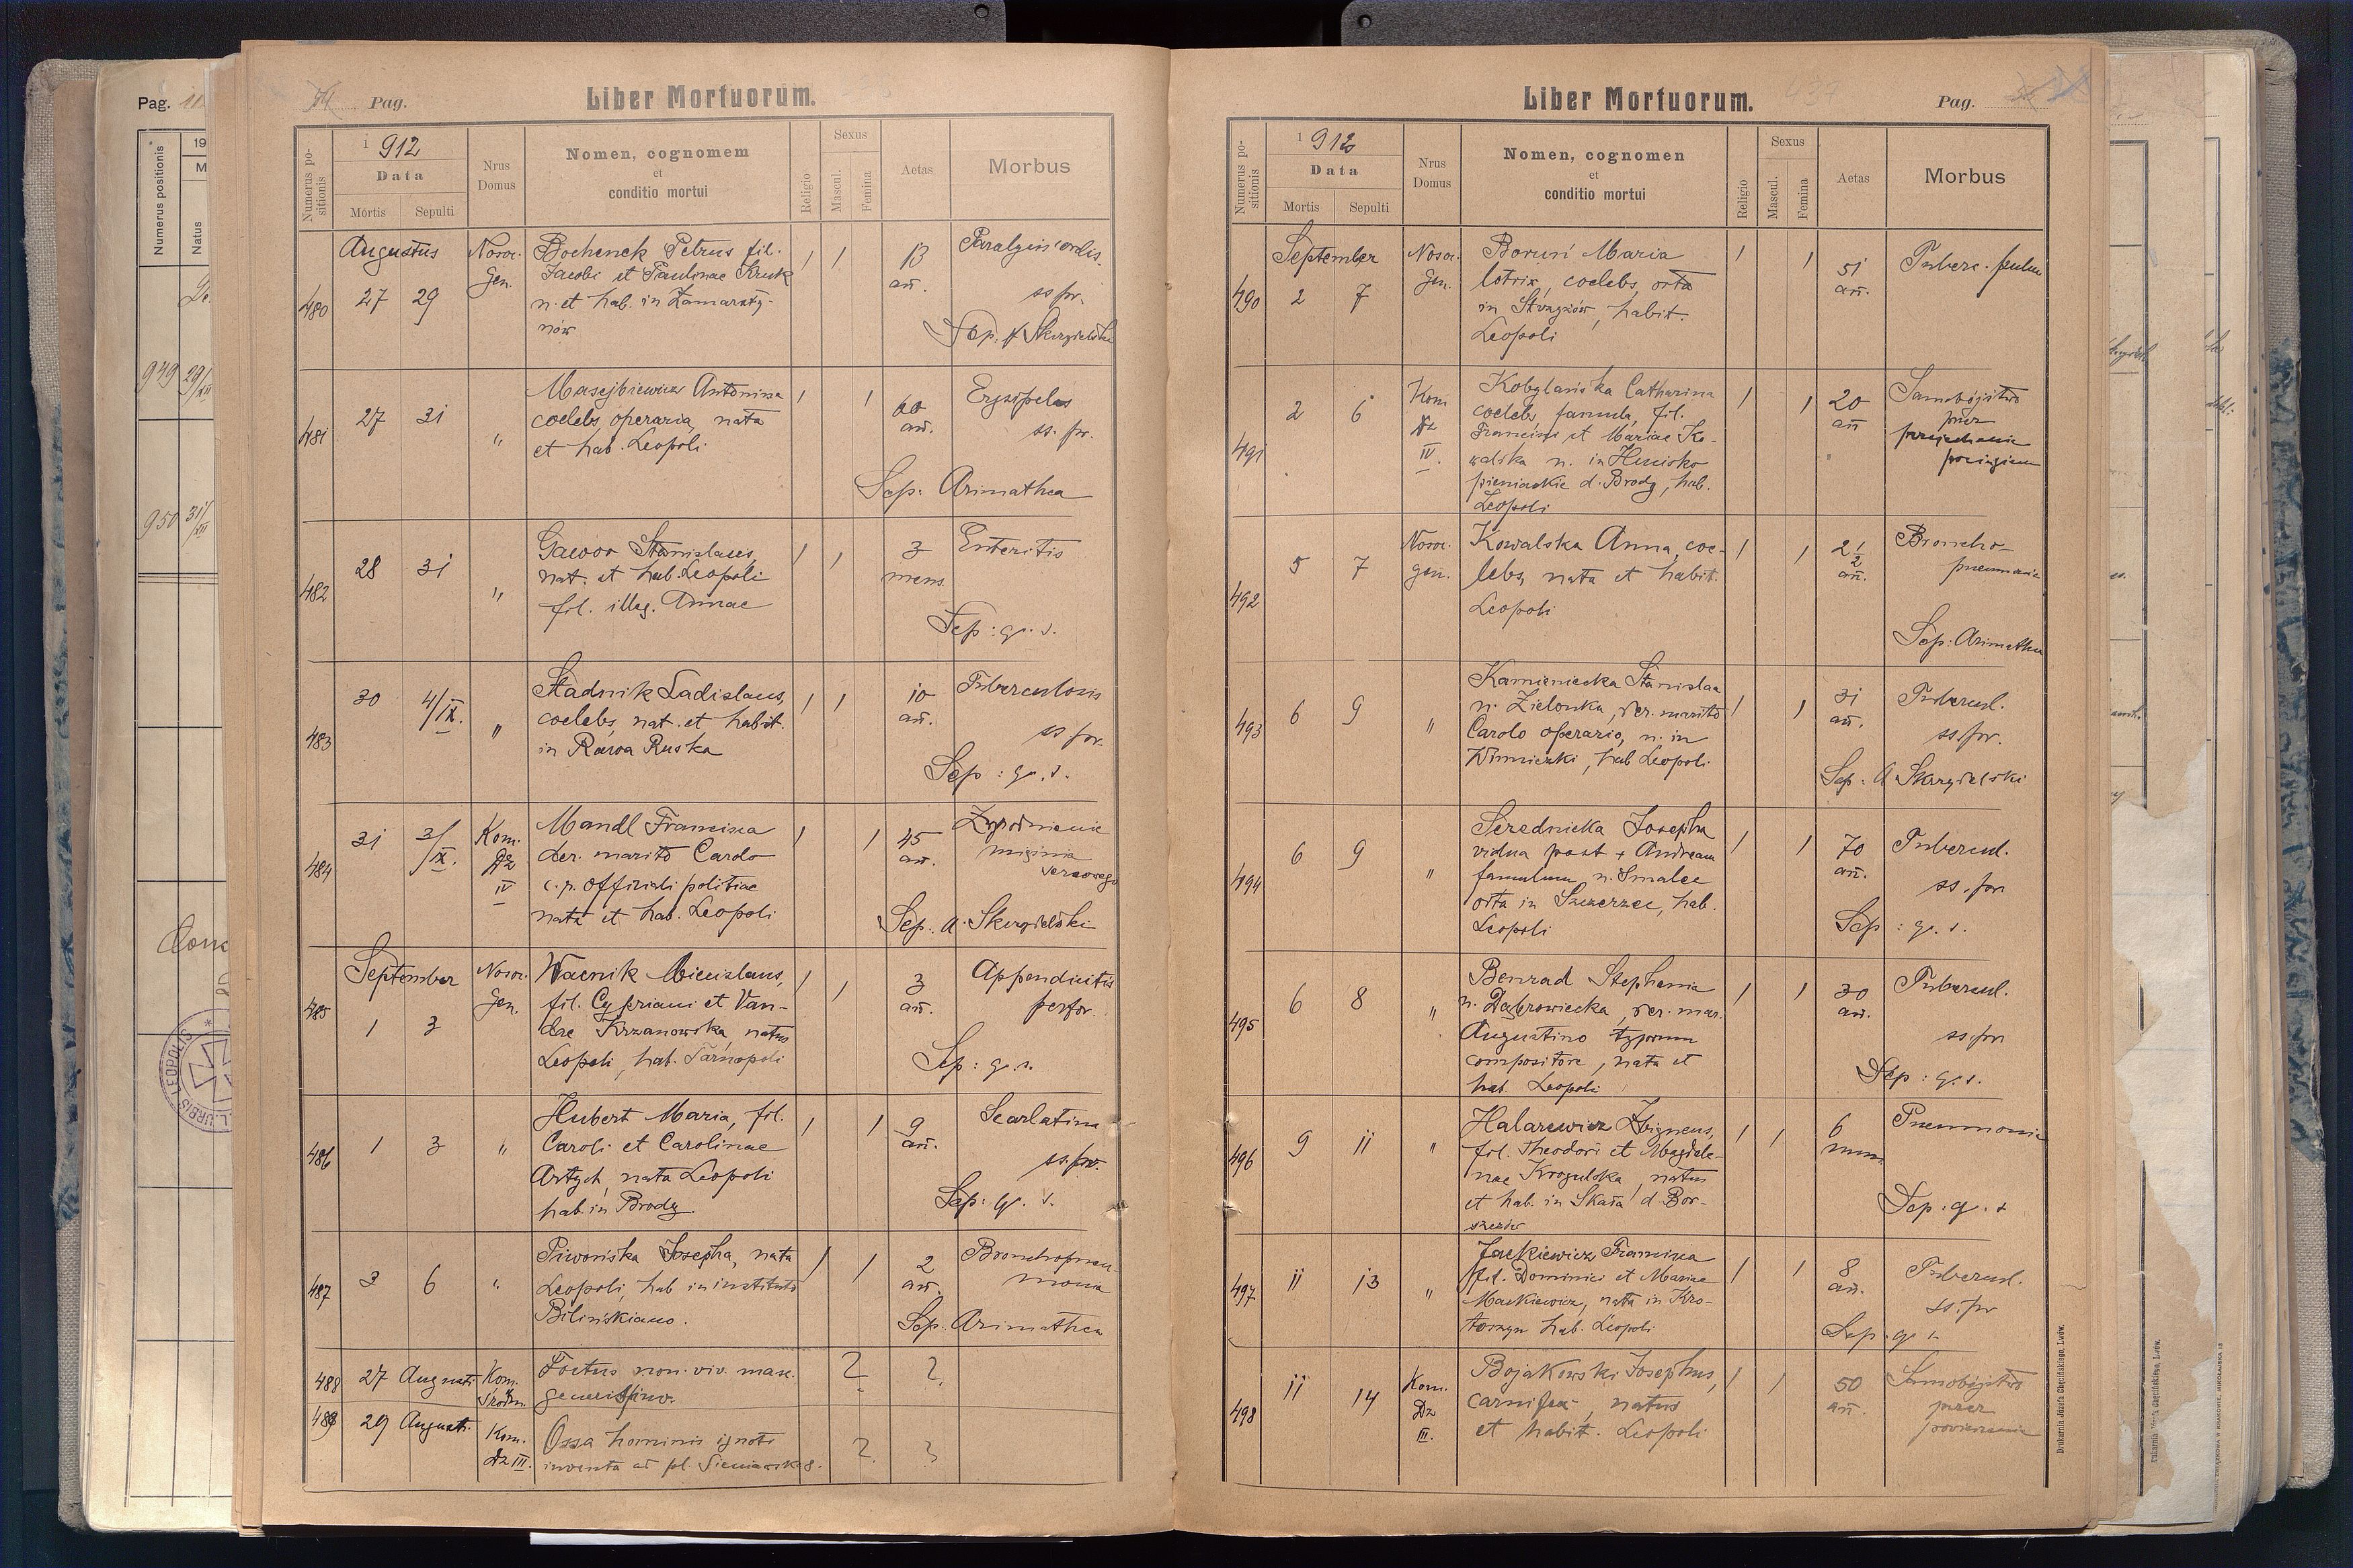 Pag.
Numerus positionis
Natus
949 29/XII
950 31/XII
Pag.
Liber Mortuorum.
Numerus positionis
1912
Data
Mortis
Sepulti
Nrus Domus
Nomen, cognomem
et
conditio mortui
Religio
Sexus
Mascul.
Femina
Aetas
Morbus
480
Augustus
27 29
Nosoc. gen.
Bochenek Petrus fil.
Jacobi et Paulinae Kruk
n. et hab. in Zamarsty-
nów
1 1
13 an.
Paralysis cordis.
ss. pr.
Sep. A Skurzielski
481
27 31
"
Antonina
coelebs operaria, nata
et hab. Leopoli
1 1
60 an.
Erysipelas
ss. pr.
Sep: Arimathea
482
28 31
"
Gawor Stanislaus,
nat. et hab. Leopoli
fil. illeg. Annae
1 1
3 mens.
Enteritis
Sep: gr. s.
483
30 4/IX.
"
Stadnik Ladislaus,
coelebs, nat. et habit.
in Rawa Ruska
1 1
10 an.
Tuberculosis
ss pr.
Sep: gr. s.
484
31 3/IX.
Kom. Dz IV
Mandl Francisca
der. marito Carolo
c. r. officiali politiae
nata et hab. Leopoli
1 1
45 an.
Zwyrodnienie
mięśnia
sercowego
Sep. A. Skurzielski
485
September
1 3
Nosoc. gen.
Wacnik Miecislaus,
fil. Cypriani et Van-
dae Krzanowska natus
Leopoli, hab. Tarnopoli
1 1
3 an.
Appendicitis
perfor.
Sep: gr. s.
486
1 3
"
Hubert Maria, fil.
Caroli et Carolinae
Artych, nata Leopoli
hab. in Brody.
1 1
9 an.
Scarlatina
ss. pr.
Sep: gr. s.
487
3 6
"
Piwońska Josepha, nata
Leopoli, hab in instituto
Bilińskiano.
1 1
2 an.
Bronchopneu-
monia
Sep. Arimathea
488
27 Augusti
Kom. Śródm.
Foetus non viv. masc.
generis
? ?
489
29 Augusti
Kom. Dz III.
Ossa hominis ignoti
inventa ad pl. Sieniawska 8.
? ?
Liber Mortuorum.
437
Pag.
Numerus positionis
1912
Data
Mortis
Sepulti
Nrus Domus
Nomen, cognomen
et
conditio mortui
Religio
Sexus
Mascul.
Femina
Aetas
Morbus
490
September
2 7
Nosoc. gen.
Maria
lotrix, coelebs, orta
in habit.
Leopoli
1 1
51 an.
Tuberc. pulm
491
2 6
Kom Dz IV.
Kobylańska Catharina
coelebs famula, fil.
Francisci et Mariae Ko-
walska n. in Hucisko
pieniackie d. Brody, hab.
Leopoli
1 1
20 an
Samobójstwo
przez
przejechanie
pociągiem
492
5 7
Nosoc. gen.
Kowalska Anna, coe-
lebs, nata et habit.
Leopoli
1 1
2 1/2 an.
Broncho-
pneumonia
Sep: Arimathea
493
6 9
"
Kamieniecka Stanislaa
n. Zielonka, der. marito
Carolo operario, n. in
Winniczki, hab Leopoli
1 1
31 an.
Tubercul.
ss. pr.
Sep: A Skurzielski
494
6 9
"
Serednicka Josepha
vidua post + Andream
famulum, n. Smalec
orta in Szczerzec, hab.
Leopoli
1 1
70 an.
Tubercul.
ss. pr
Sep: gr. s.
495
6 8
"
Benrad Stephania
n. Dąbrowiecka, der. mar.
Augustino typorum
compositore, nata et
hab. Leopoli
1 1
30 an.
Tubercul.
ss. pr
Sep: gr. s.
496
9 11
"
Halarewicz Zbigneus,
fil. Theodori et Magdale-
nae Krogulska, natus
et hab. in Skała d. Bor-
szczów
1 1
6 mens.
Pneumonia
Sep: g. s
497
11 13
"
Jackiewicz Francisca
fil. Dominici et Mariae
Mackiewicz, nata in Kro-
toszyn hab. Leopoli
1 1
8 an.
Tubercul.
ss. pr
Sep: gr s
498
11 14
Kom. Dz III.
Bojakowski Josephus,
carnifex, natus
et habit. Leopoli
1 1
50 an.
Samobójstwo
przez
powieszenie
Drukarnia Józefa Chęcińskiego, Lwów.